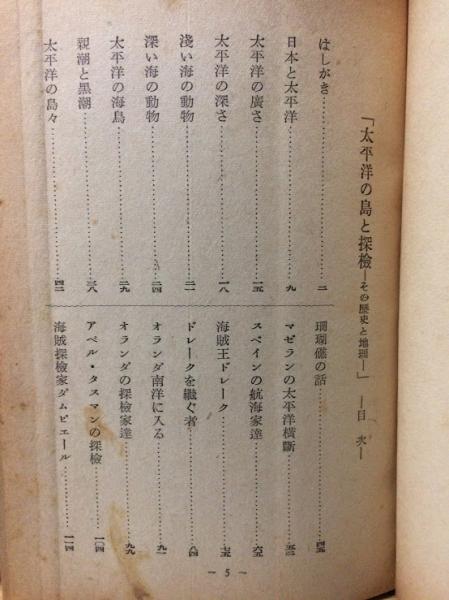 「太平洋の島と探檢—その歷史と地理—」 —目次—
はしがき……二
日本と太平洋……九
太平洋の廣さ……一五
太平洋の深さ……一八
淺い海の動物……二一
深い海の動物……二四
太平洋の海鳥……二九
親潮と黑潮……三八
太平洋の島々……四二
珊瑚礁の話……四五
マゼランの太平洋橫斷……五二
スペインの航海家達……六五
海賊王ドレーク……七五
ドレークを繼ぐ者……八四
オランダ南洋に入る……九一
オランダの探檢家達……九九
アベル・タスマンの探檢……一〇四
海賊探檢家ダムピエール……一一四
— 5 —